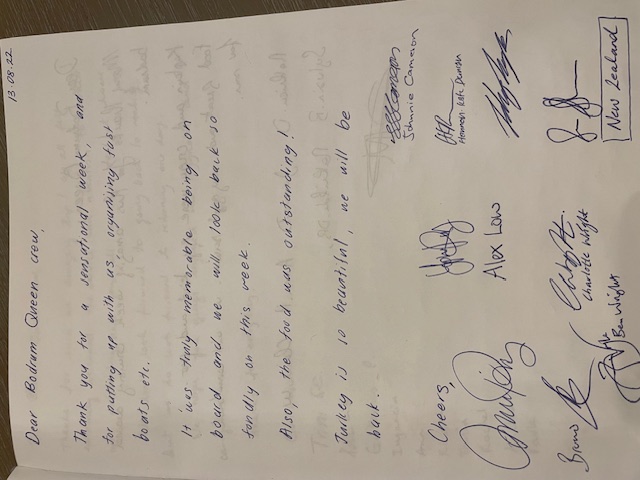 13.08.22
Dear Bodrum Queen crew,
Thank you for a sensational week, and
for putting up with us, organising fast
boats etc.
It was truly memorable being on
board and we will look back so
fondly on this week.
Also, the food was outstanding!
Turkey is so beautiful, we will be
back.
Cheers,
Johnnie Cameron
Alex Low
Charlotte Wright
Bruno
Ben Wright
New Zealand